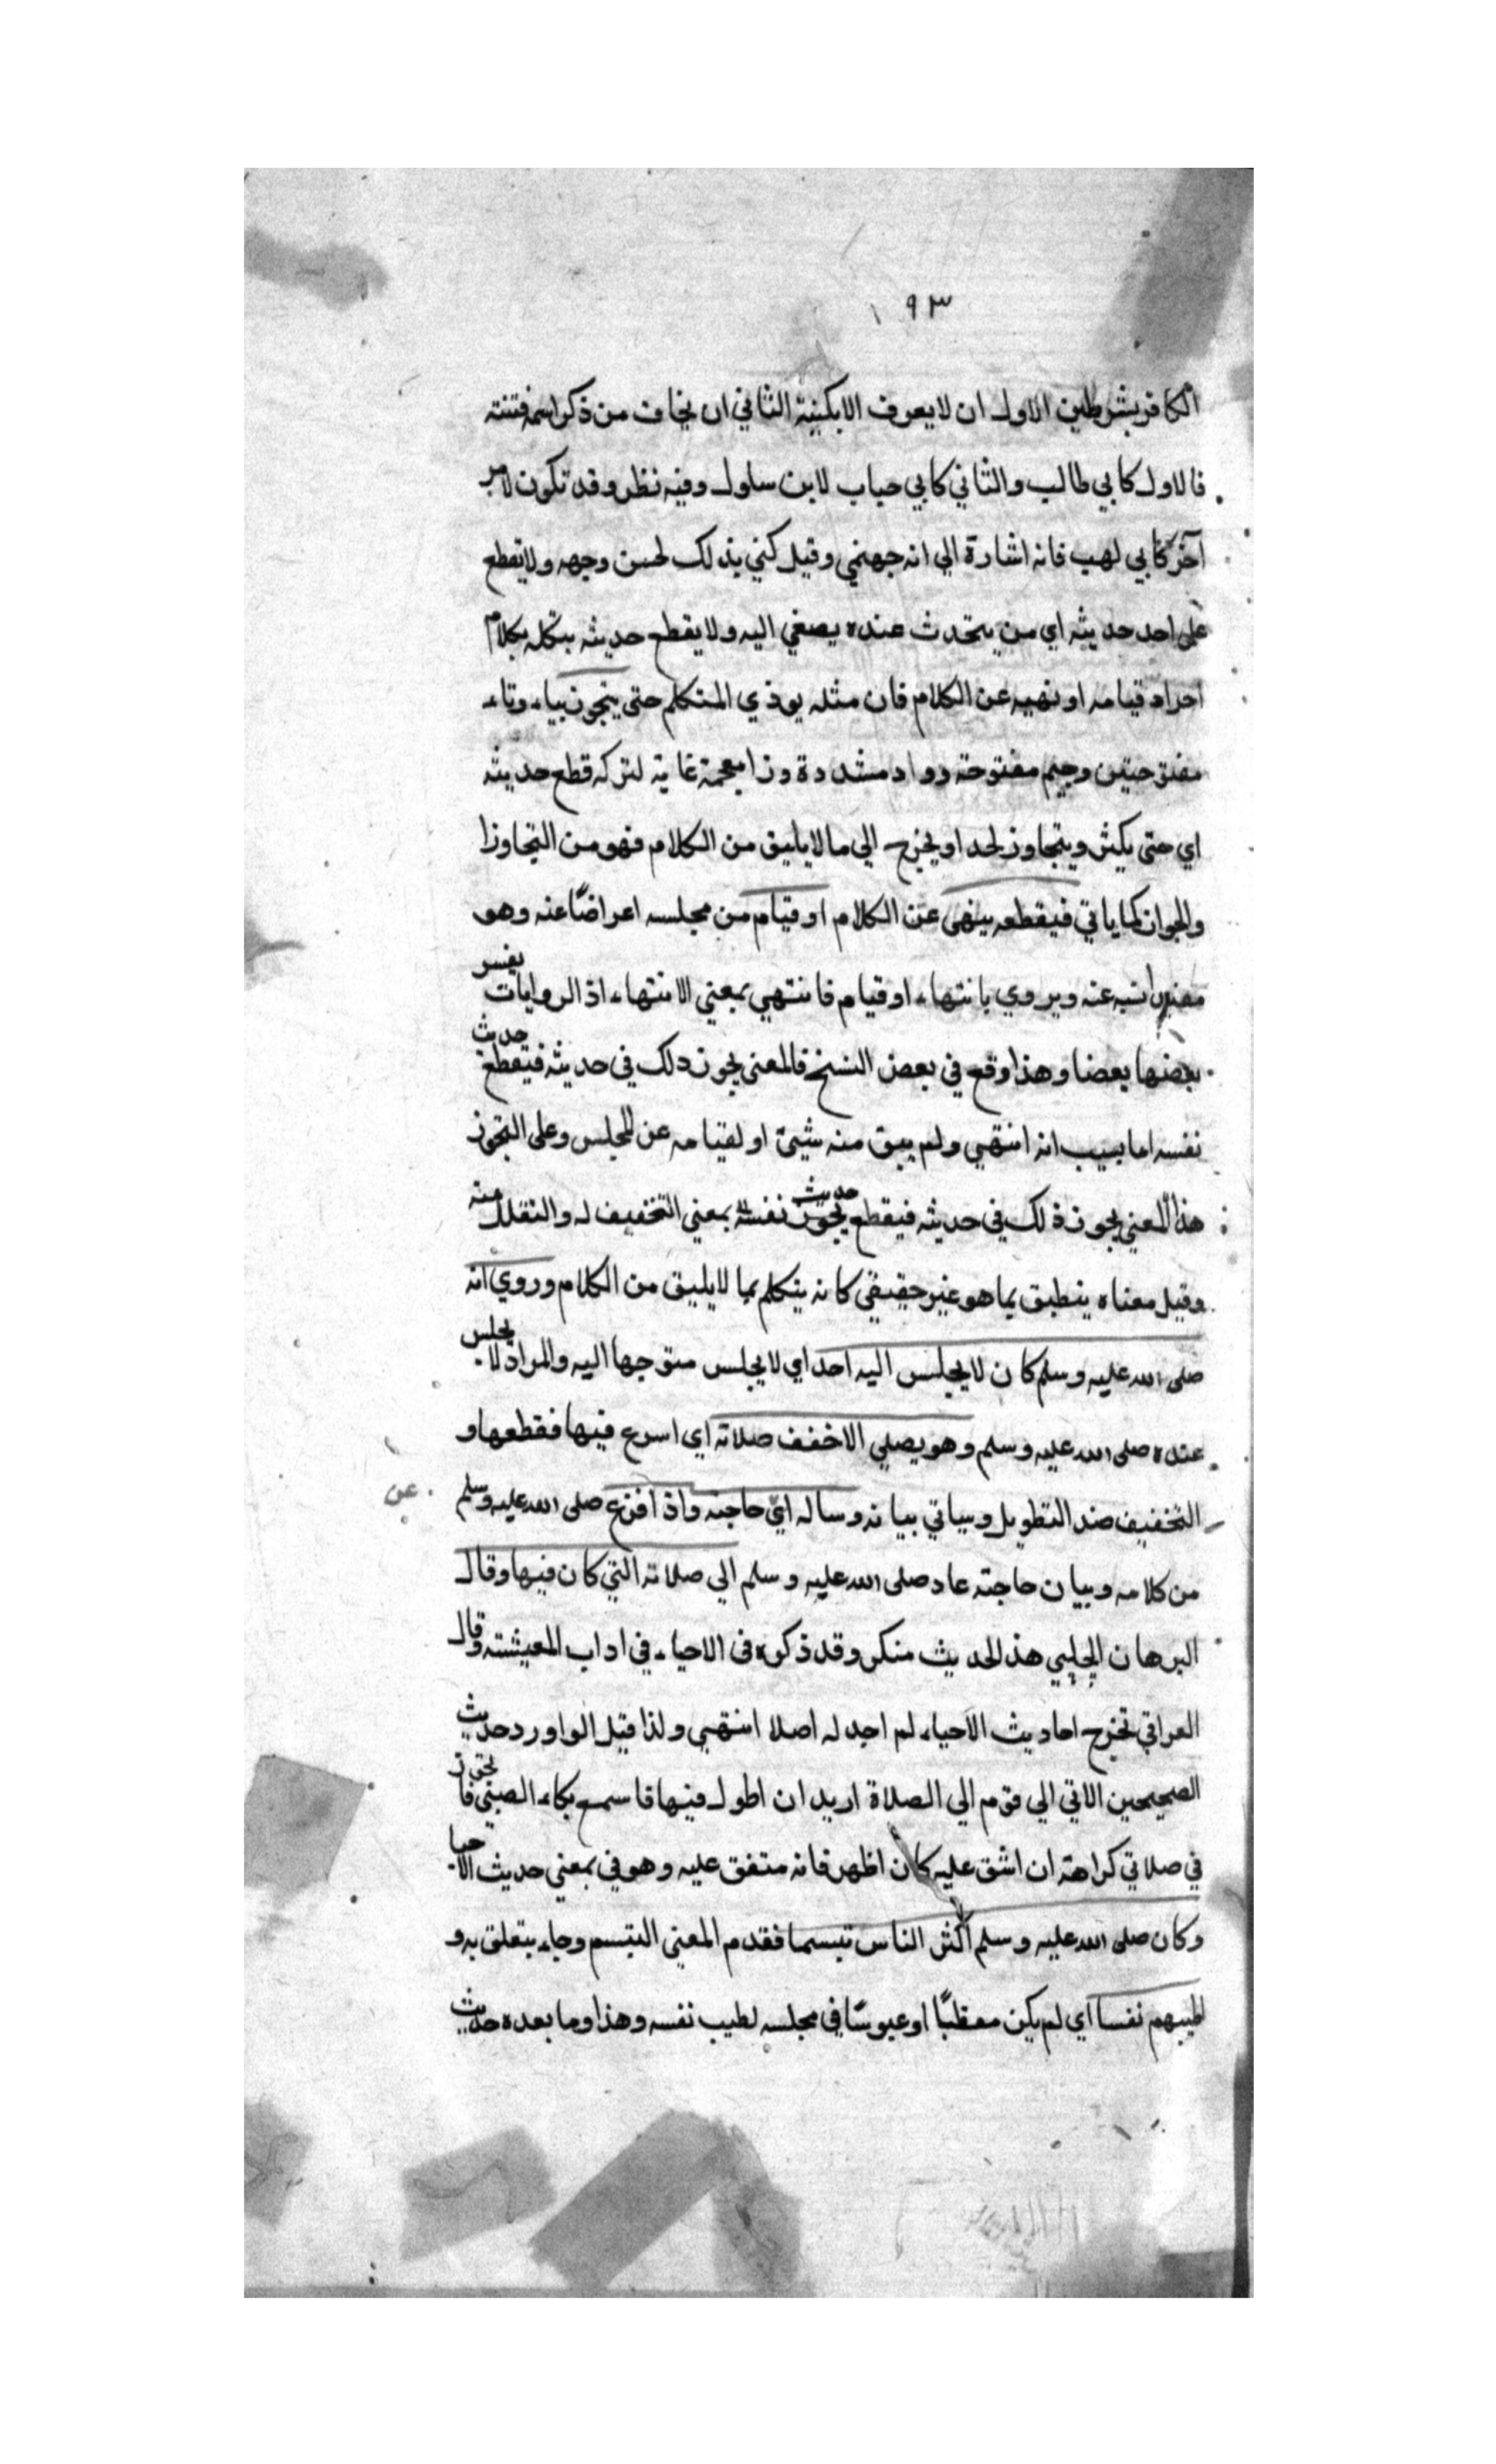 ١٩٣
الكافر بشرطين الاول ان لا يعرف الا بكنيته الثاني ان يخاف من ذكر اسمه فتنته
فالاول كابي طالب والثاني كابي حباب لابن سلول وفيه نظر وقد تكون لامر
آخر كابي لهب فانه اشارة الي انه جهنمي وقيل كني بذلك لحسن وجهه ولا يقطع
علي احد حديثه اي من يتحدث عنده يصغي اليه ولا يقطع حديثه بتكلمه بكلام
اخر او قيامه او نهيه عن الكلام فان مثله يوذي المتكلم حتي يتجوز بياء وتاء
مفتوحتين وجيم مفتوحة وواو مشددة وزا معجمة غاية لتركه قطع حديثه
اي حتى يكثر ويتجاوز الحد او يخرج الي ما لا يليق من الكلام فهو من التجاوزا
والجواز كما ياتي فيقطعه بنهى عن الكلام او قيام من مجلسه اعراضا عنه وهو
انيه عنه ويروي بانتهاء او قيام فانتهي بمعني الانتهاء اذ الروايات يفسر
بعضها بعضا وهذا وقع في بعض النسخ فالمعني يجوز ذلك في حديثه فيقطع حديث
نفسه اما بسبب انه انتهي ولم يبق منه شيئ او لقيامه عن المجلس وعلى التجوز
هذا المعني يجوز ذلك في حديثه فيقطع حديث نفسه بمعني التخفيف له والتقلل منه
وقيل معناه ينطبق بما هو غير حقيقي كانه يتكلم بما لا يليق من الكلام وروي انه
صلى الله عليه وسلم كان لا يجلس اليه احد اي لا يجلس متوجها اليه والمراد لا يجلس
عنده صلى الله عليه وسلم وهو يصلي الا خفف صلاته اي اسرع فيها فقطعها و
التخفيف ضد التطويل وسياتي بيانه وساله اي حاجته واذا افزع صلى الله عليه وسلم
عن
من كلامه وبيان حاجته عاد صلى الله عليه وسلم الي صلاته التي كان فيها وقال
البرهان الحلبي هذا الحديث منكر وقد ذكره في الاحياء في اداب المعيشته وقال
العراقي تخرج احاديث الاحياء لم اجد له اصلا انتهي ولذا قيل الو اورد حديث
الصحيحين الاتي الي قوم الي الصلاة اريد ان اطول فيها فاسمع بكاء الصبي فاتجوز
في صلاتي كراهة ان اشق عليه كان اظهر فانه متفق عليه وهو في بمعني حديث الاحيا
وكان صلى الله عليه وسلم اكثر الناس تبسما فقدم المعني التبسم وجاء يتعلق به و
اطيبهم نفسا اي لم يكن مقطبًا او عبوسًا في مجلسه لطيب نفسه وهذا وما بعده حديث